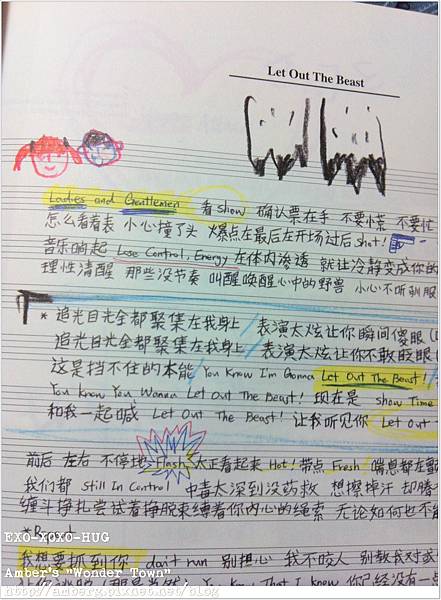 Let Out The Beast
Ladies and Gentlemen 看show 确认票在手 不要慌 不要忙
怎么看着表 小心撞了头 爆点在最后在开场过后 shot!
音乐响起 Lose Control, Energy 在体内渗透 就让冷静变成你的
理性清醒 那些没节奏 叫醒唤醒心中的野兽 小心不听驯服
* 追光目光全都聚集在我身上 / 表演太炫让你瞬间傻眼
追光目光全都聚集在我身上 / 表演太炫让你不敢眨眼
这是挡不住的本能 / You Know I'm Gonna Let Out The Beast!
You Know You Wanna Let Out The Beast! 现在是 show Time
和我一起喊 Let Out The Beast! 让我听见你 Let out
前后 左右 不停地 Flash 人正看起来 Hot! 带点 Fresh 喘息都在
我们都 Still In Control 中毒太深到没药救 想擦掉汗 却
缠斗挣扎尝试着挣脱束缚着你内心的绳索 无论如何也不
* R
我想要抓到你 don't run 别担心 我不咬人 别
You Know That I Know 你已经没有一点
EXO-XOXO-HUG
Amber's "Wonder Town"
http://amberg.pixnet.net/blog